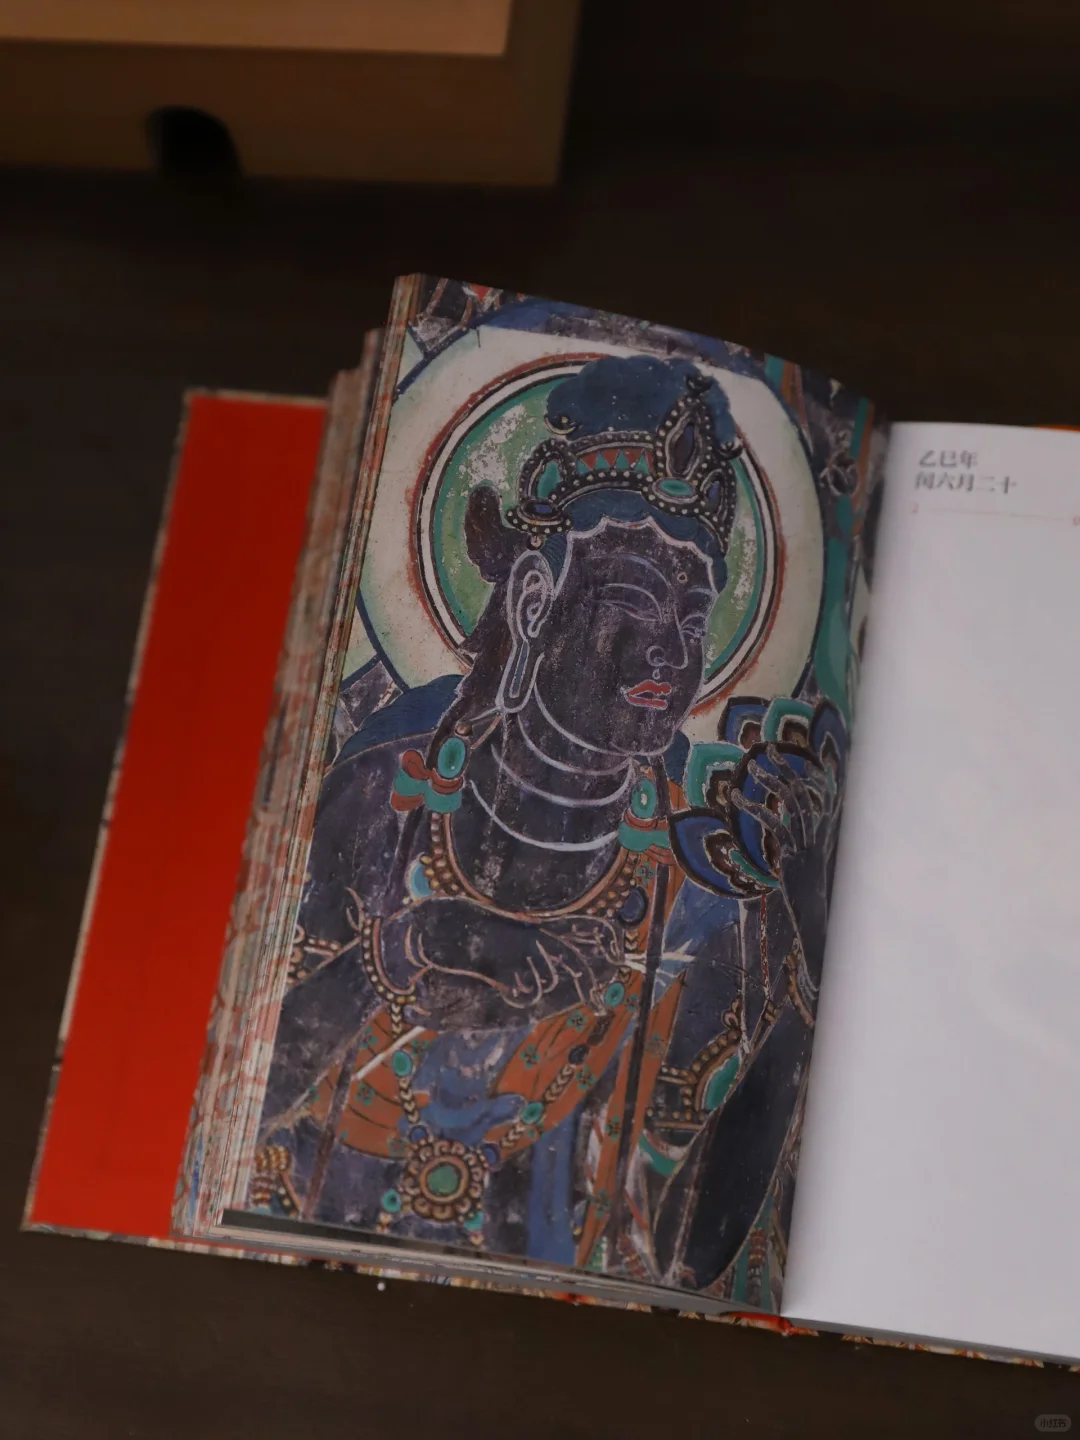 乙巳年
闰六月二十
小红书